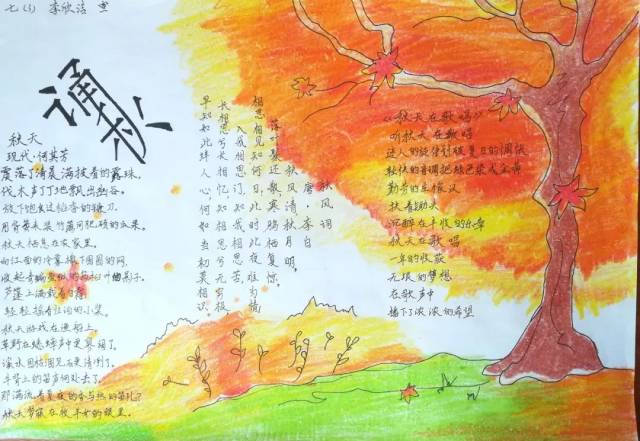 七(3) 李欣洁
诵秋
秋天
现代·何其芳
震落了清晨满披着的露珠.
伐木声丁丁地飘出幽谷.
放下饱食过稻香的镰刀.
用背篓来装竹篱间肥硕的瓜果.
秋天栖息在农家里.
向江面的冷雾撒下圆圆的网.
收起青鳊鱼似的乌桕叶的影子.
芦蓬上满载着白霜
轻轻摇着归泊的小桨.
秋天游戏在渔船上.
草野在蟋蟀声中更寥阔了.
溪水因枯涸见石更清冽了.
牛背上的笛声何处去了.
那满流着夏夜的香与热的笛孔?
秋天梦寐在牧羊女的眼里.
秋风词
唐·李白
秋风清,秋月明,
落叶聚还散,寒鸦栖复惊.
相思相见知何日,此时此夜难为情
入我相思门,知我相思苦.
长相思兮长相忆,短相思兮无穷极
早知如此绊人心,何如当初莫相识
《秋天在歌唱》
听秋天在歌唱
迷人的旋律划破夏日的惆怅
的音调把绿色染成金黄
勤劳的主旋
沉醉在丰收的乐章
秋天在歌唱
一年的收获
无垠的梦想
在歌声中
播下了浓浓的希望